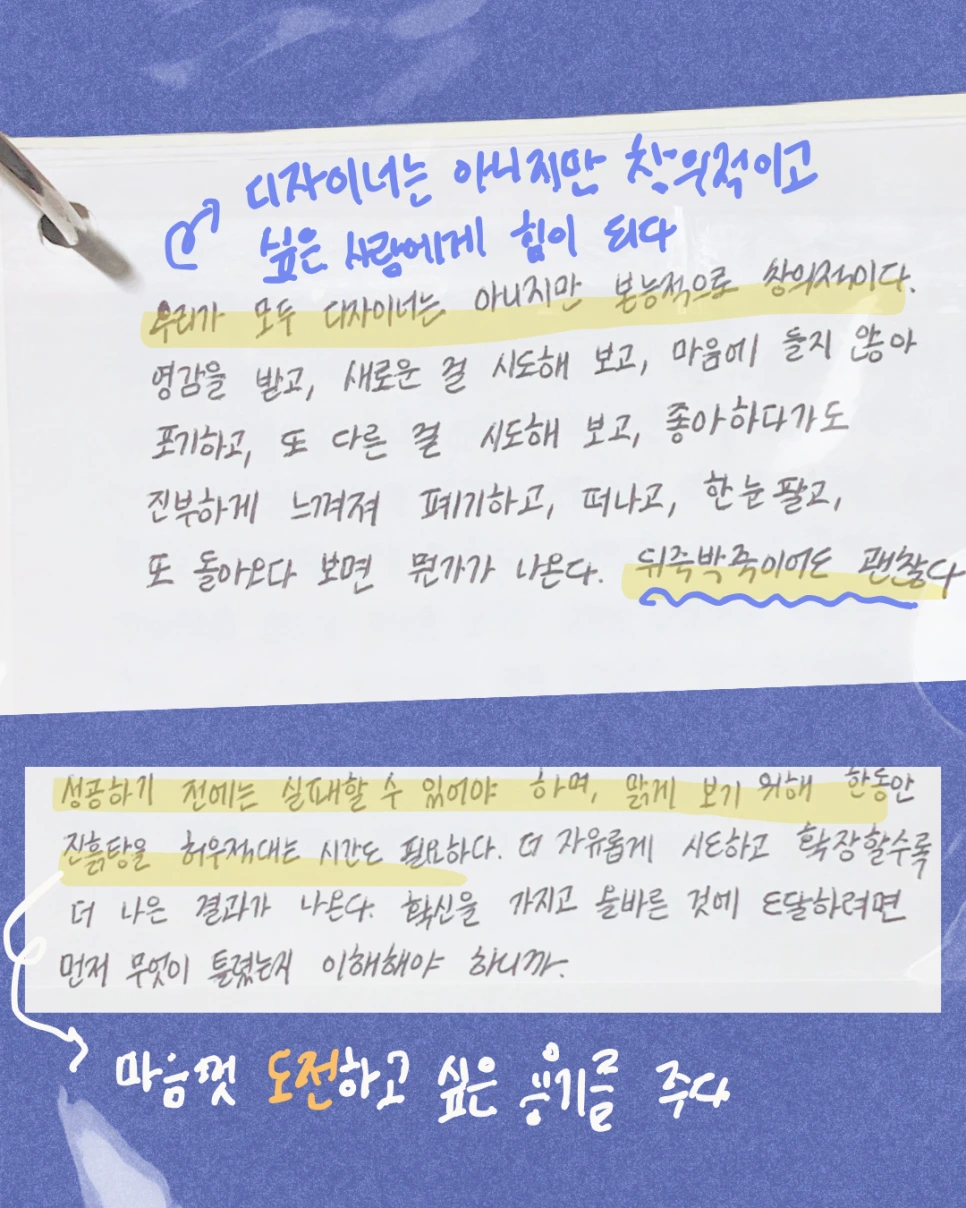 디자이너는 아니지만 창의적이고
싶은 사람에게 힘이 되다
우리가 모두 디자이너는 아니지만 본능적으로 창의적이다.
영감을 받고, 새로운 걸 시도해 보고, 마음에 들지 않아
포기하고, 또 다른 걸 시도해 보고, 좋아하다가도
진부하게 느껴져 폐기하고, 떠나고, 한눈 팔고,
또 돌아오다 보면 뭔가가 나온다. 뒤죽박죽이어도 괜찮다
성공하기 전에는 실패할 수 있어야 하며, 맑게 보기 위해 한동안
진흙탕을 허우적대는 시간도 필요하다. 더 자유롭게 시도하고 확장할수록
더 나은 결과가 나온다. 확신을 가지고 올바른 것에 도달하려면
먼저 무엇이 틀렸는지 이해해야 하니까.
마음껏 도전하고 싶은 용기를 주다